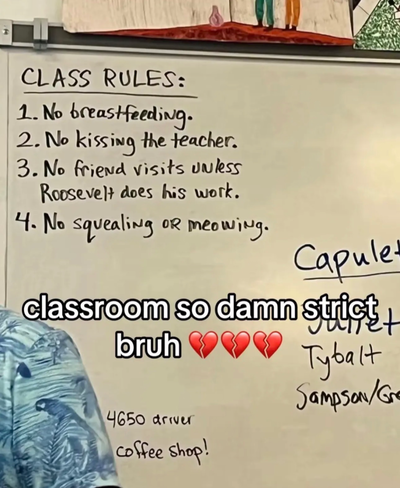 CLASS RULES:
1. No breastfeeding.
2. No kissing the teacher.
3. No friend visits unless
Roosevelt does his work.
4. No squealing or meowing.
Capulet
classroom so damn strict
bruh 💔💔💔
Juliet
Tybalt
Sampson/Gre
4650 driver
coffee shop!